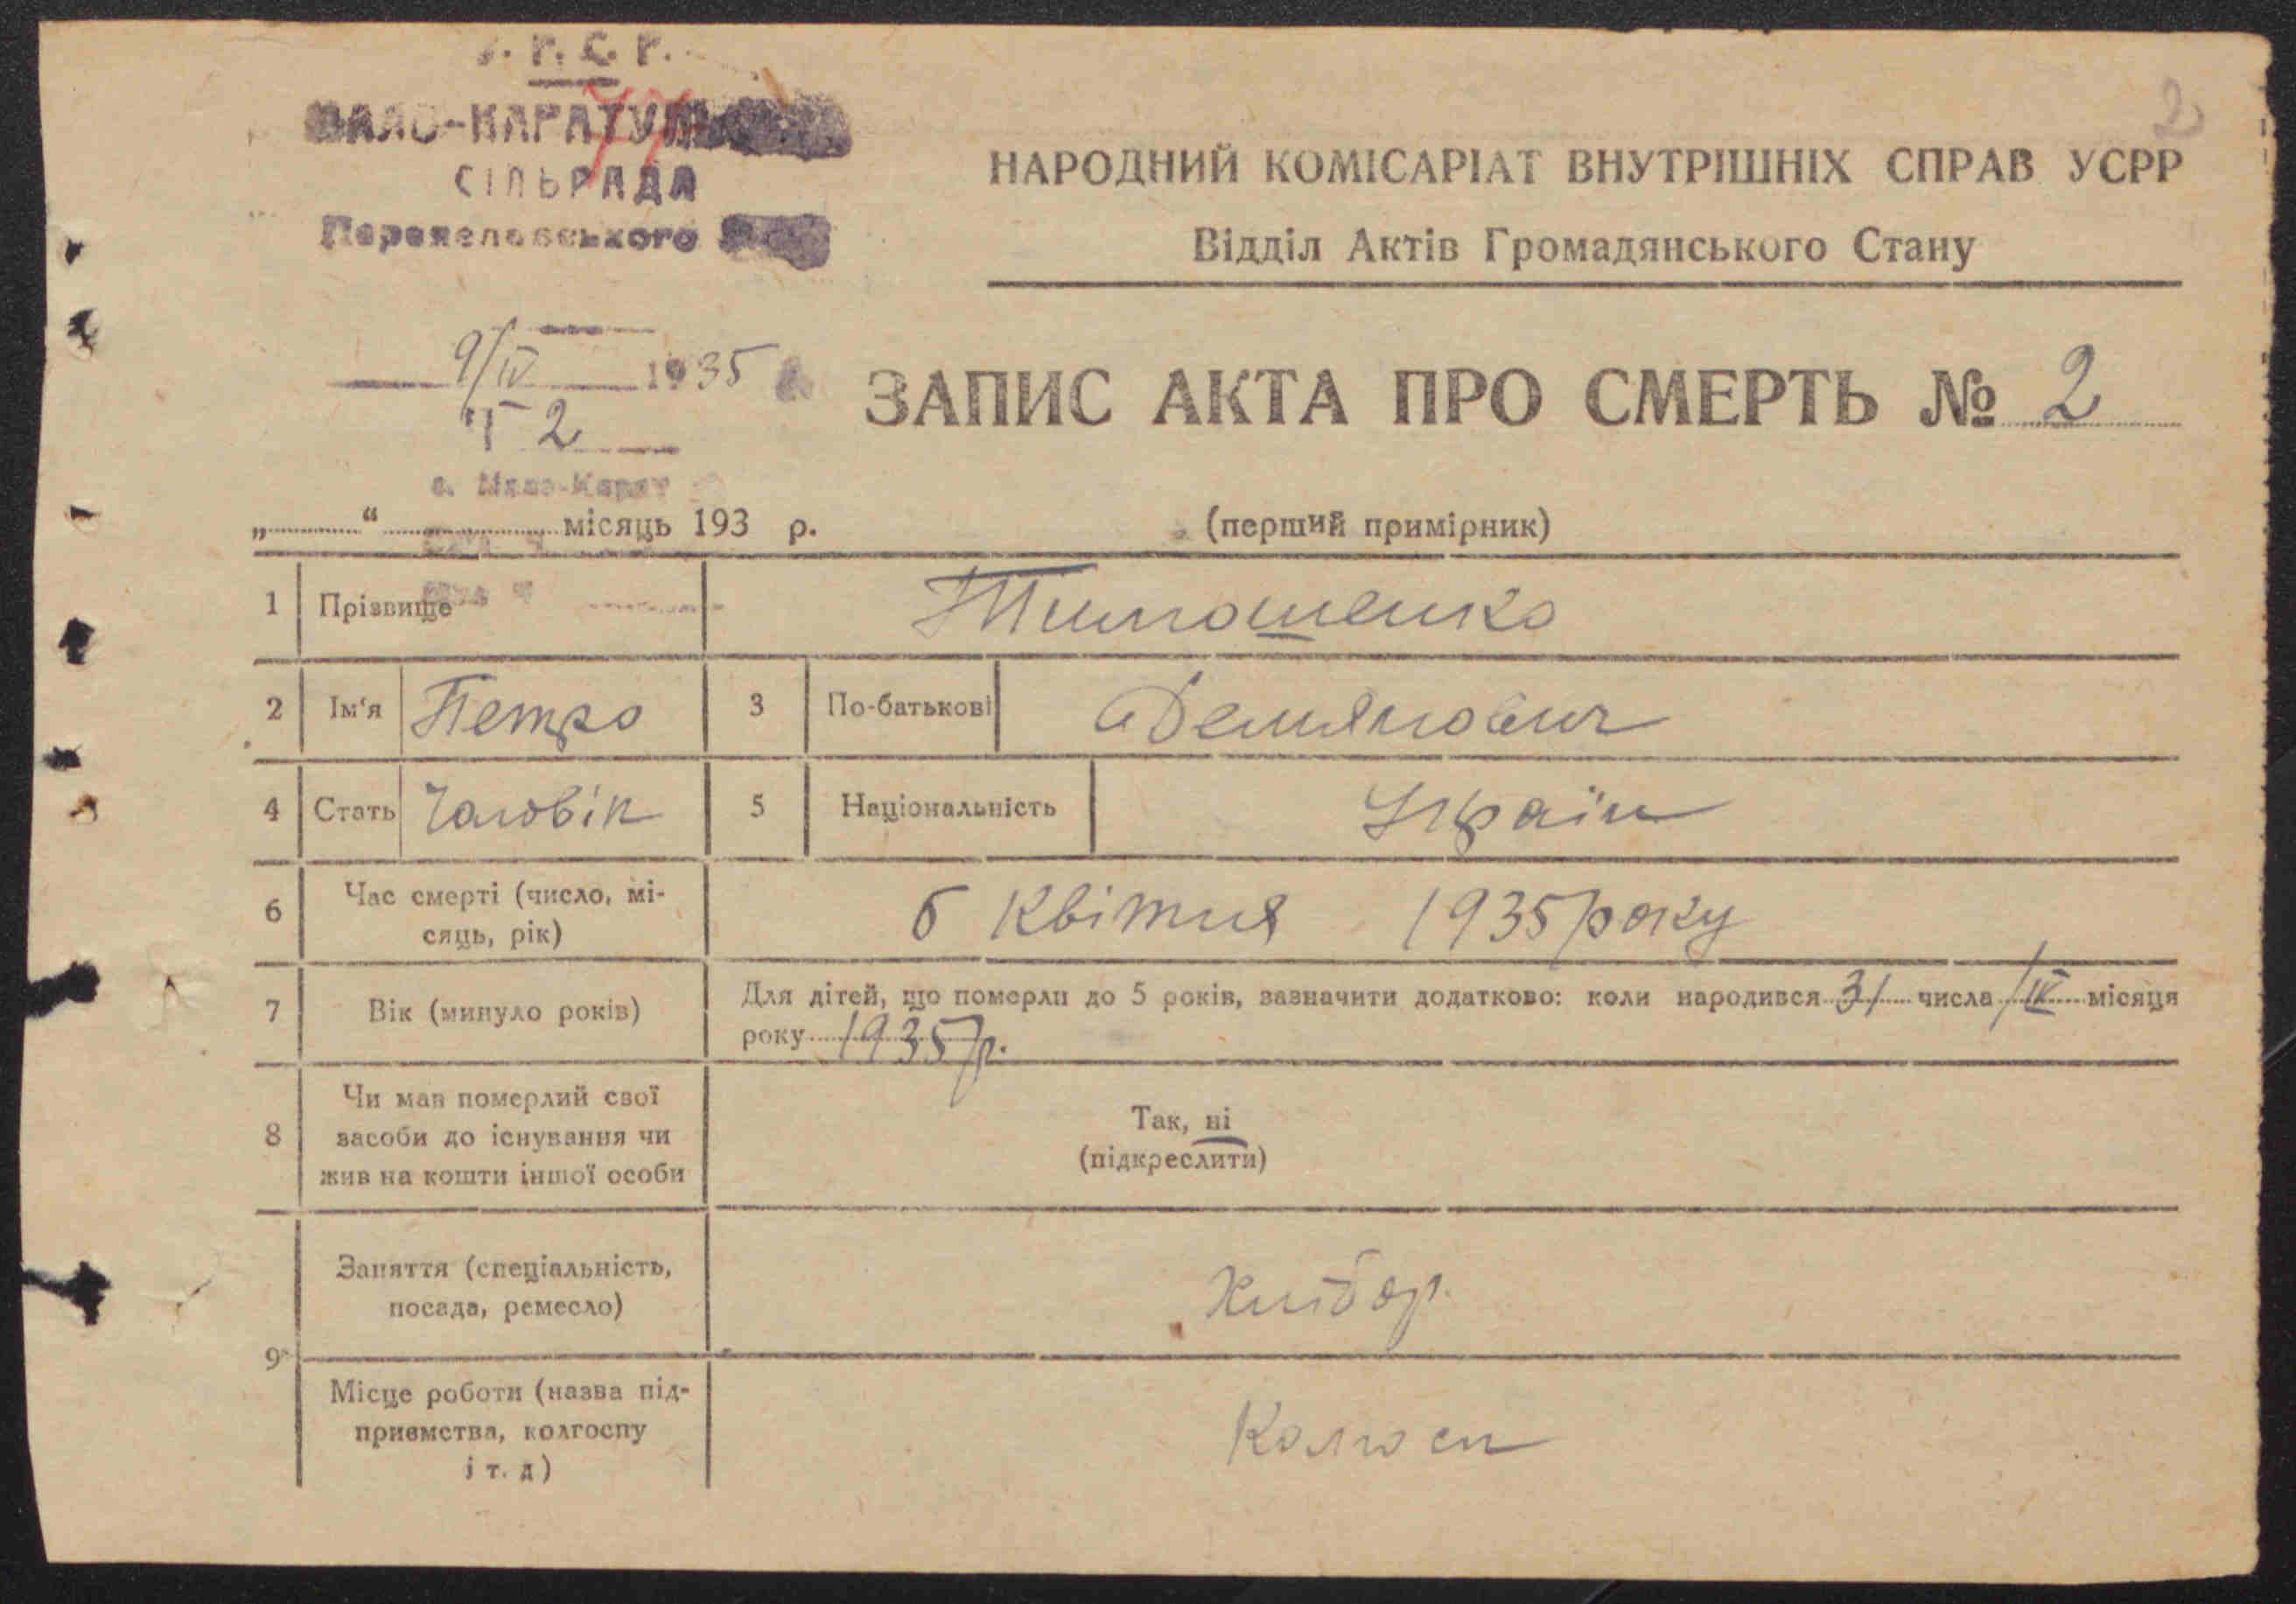 У. Р. С. Р.
МАЛО-КАРАТУЛЬ
СІЛЬРАДА
Переяславського
2
НАРОДНИЙ КОМІСАРІАТ ВНУТРІШНІХ СПРАВ УСРР
Відділ Актів Громадянського Стану
9/IV 1935
2
с. Мало-Карат
ЗАПИС АКТА ПРО СМЕРТЬ № 2
„ “ місяць 193 р.
(перший примірник)
1 Прізвище Тимошенко
2 Ім‘я Петро 3 По-батькові Демянович
4 Стать Чоловік 5 Національність Україн
6 Час смерті (число, мі-
сяць, рік) 6 Квітня 1935 року
7 Вік (минуло років) Для дітей, що померли до 5 років, зазначити додатково: коли народився 31 числа місяця
року 1935 р.
8 Чи мав померлий свої
засоби до існування чи
жив на кошти іншої особи
Так, ні
(підкреслити)
9
Заняття (спеціальність,
посада, ремесло) Хлібор.
Місце роботи (назва під-
приємства, колгоспу
і т. д) Колгосп